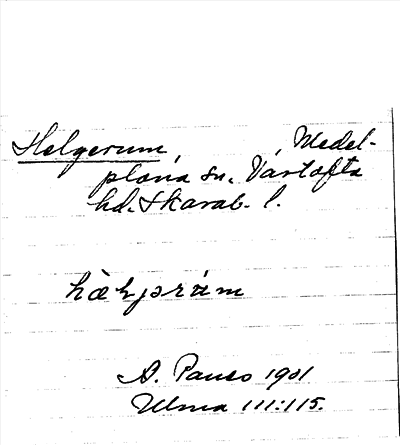 Helgerum, Medel-
plana sn. Vartofta
hd. Skarab. l.
A. Paues 1901
Ulma 111:115.